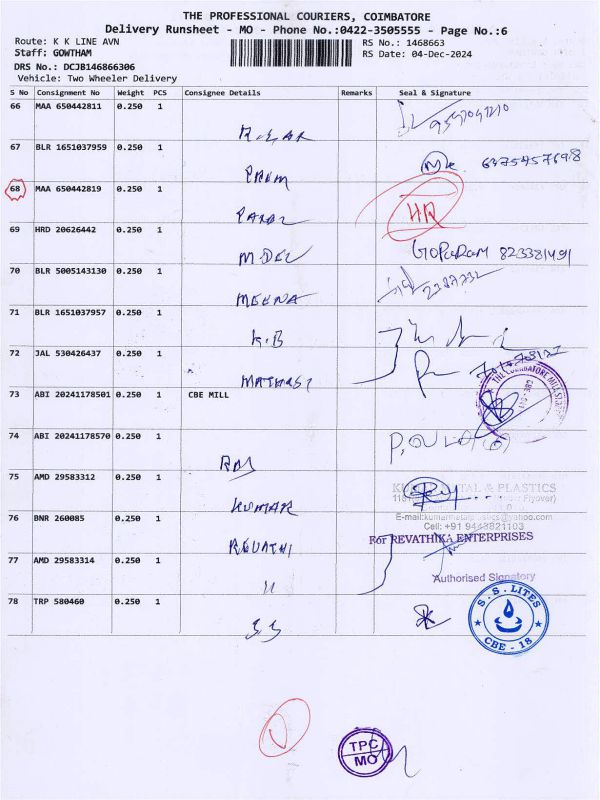 THE PROFESSIONAL COURIERS, COIMBATORE
Delivery Runsheet - MO - Phone No.:0422-3505555 - Page No.:6
Route: K K LINE AVN
RS No.: 1468663
Staff: GOWTHAM
RS Date: 04-Dec-2024
DRS No.: DCJB146866306
Vehicle: Two Wheeler Delivery
S No Consignment No Weight PCS Consignee Details Remarks Seal & Signature
66 MAA 650442811 0.250 1
67 BLR 1651037959 0.250 1
68 MAA 650442819 0.250 1
HR
69 HRD 20626442 0.250 1
MDEU
GOPURAM 823381491
70 BLR 5005143130 0.250 1
MEENA
71 BLR 1651037957 0.250 1
K.B
72 JAL 530426437 0.250 1
73 ABI 20241178501 0.250 1 CBE MILL
74 ABI 20241178570 0.250 1
75 AMD 29583312 0.250 1
KUMAR
& PLASTICS
Cell: +91 9443821103
76 BNR 260085 0.250 1
REVATHI
For REVATHIKA ENTERPRISES
77 AMD 29583314 0.250 1
"
Authorised Signatory
78 TRP 580460 0.250 1
S.S
S.S. LITES
CBE - 18
TPC
MO